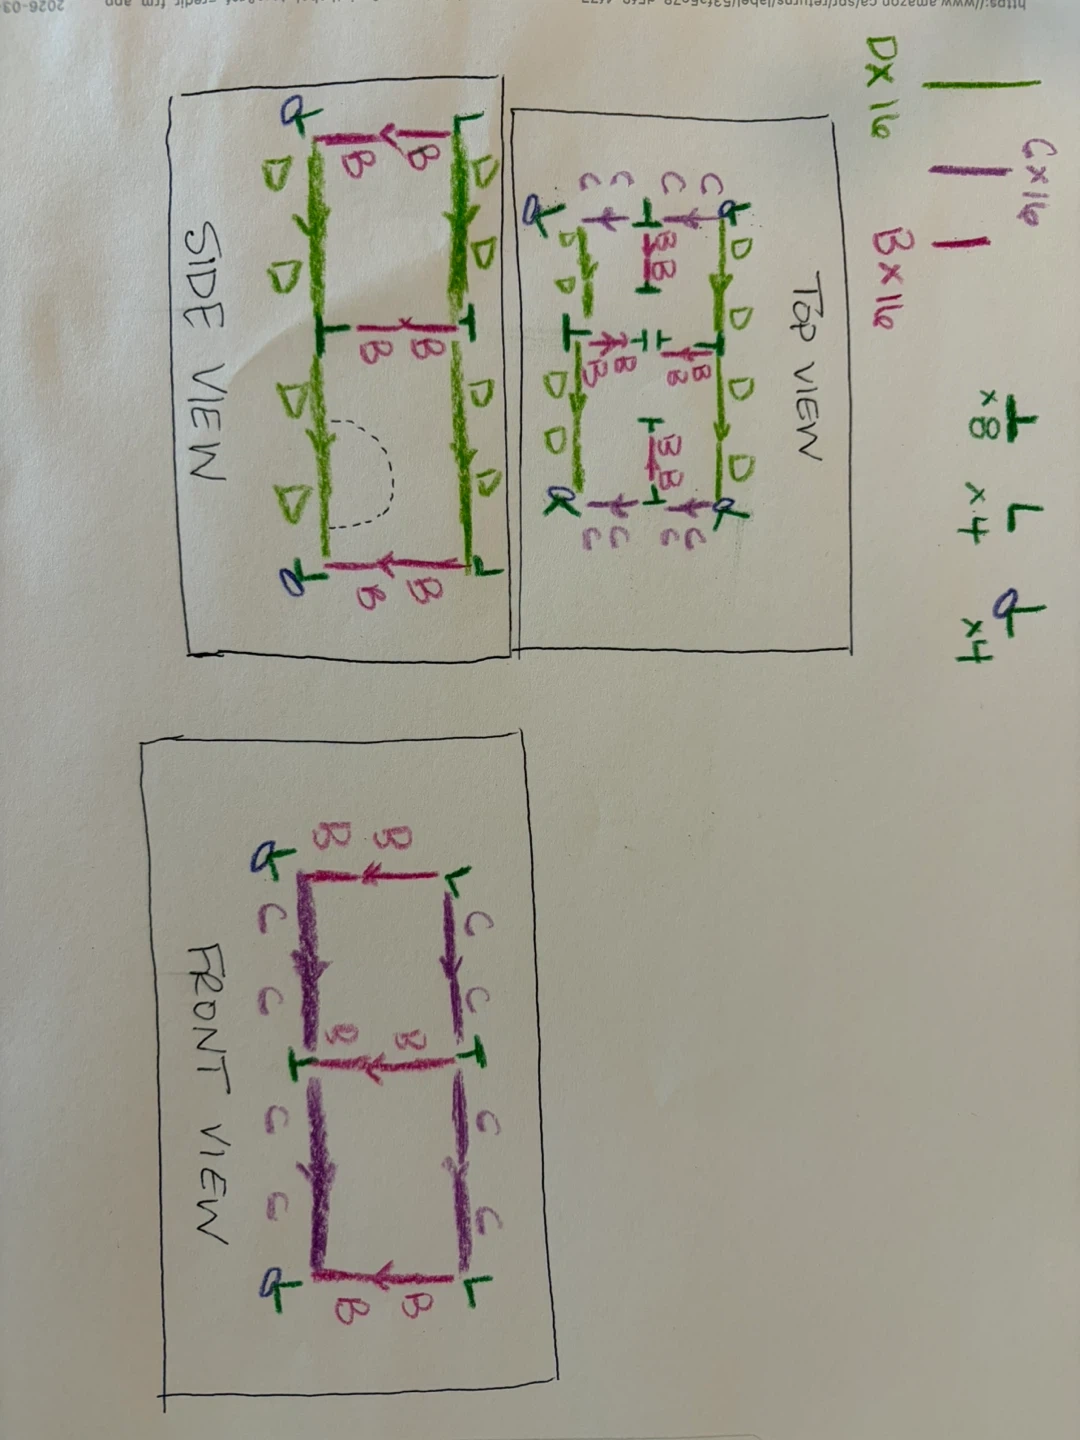 https://www.amazon.ca/spr/returns/label/
2026-03-
D x 16
C x 16
B x 16
x8
x4
x4
TOP VIEW
C C C C
D D D D
B B
B B B B
B B
D D D D
C C C C
SIDE VIEW
D D D D
B B B B B B
D D D D
FRONT VIEW
C C C C
B B B B B B
C C C C